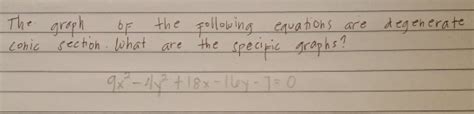 The graph of the following equations are degenerate
conic section. What are the specific graphs?
9x² - 4y² + 18x - 16y - 7 = 0